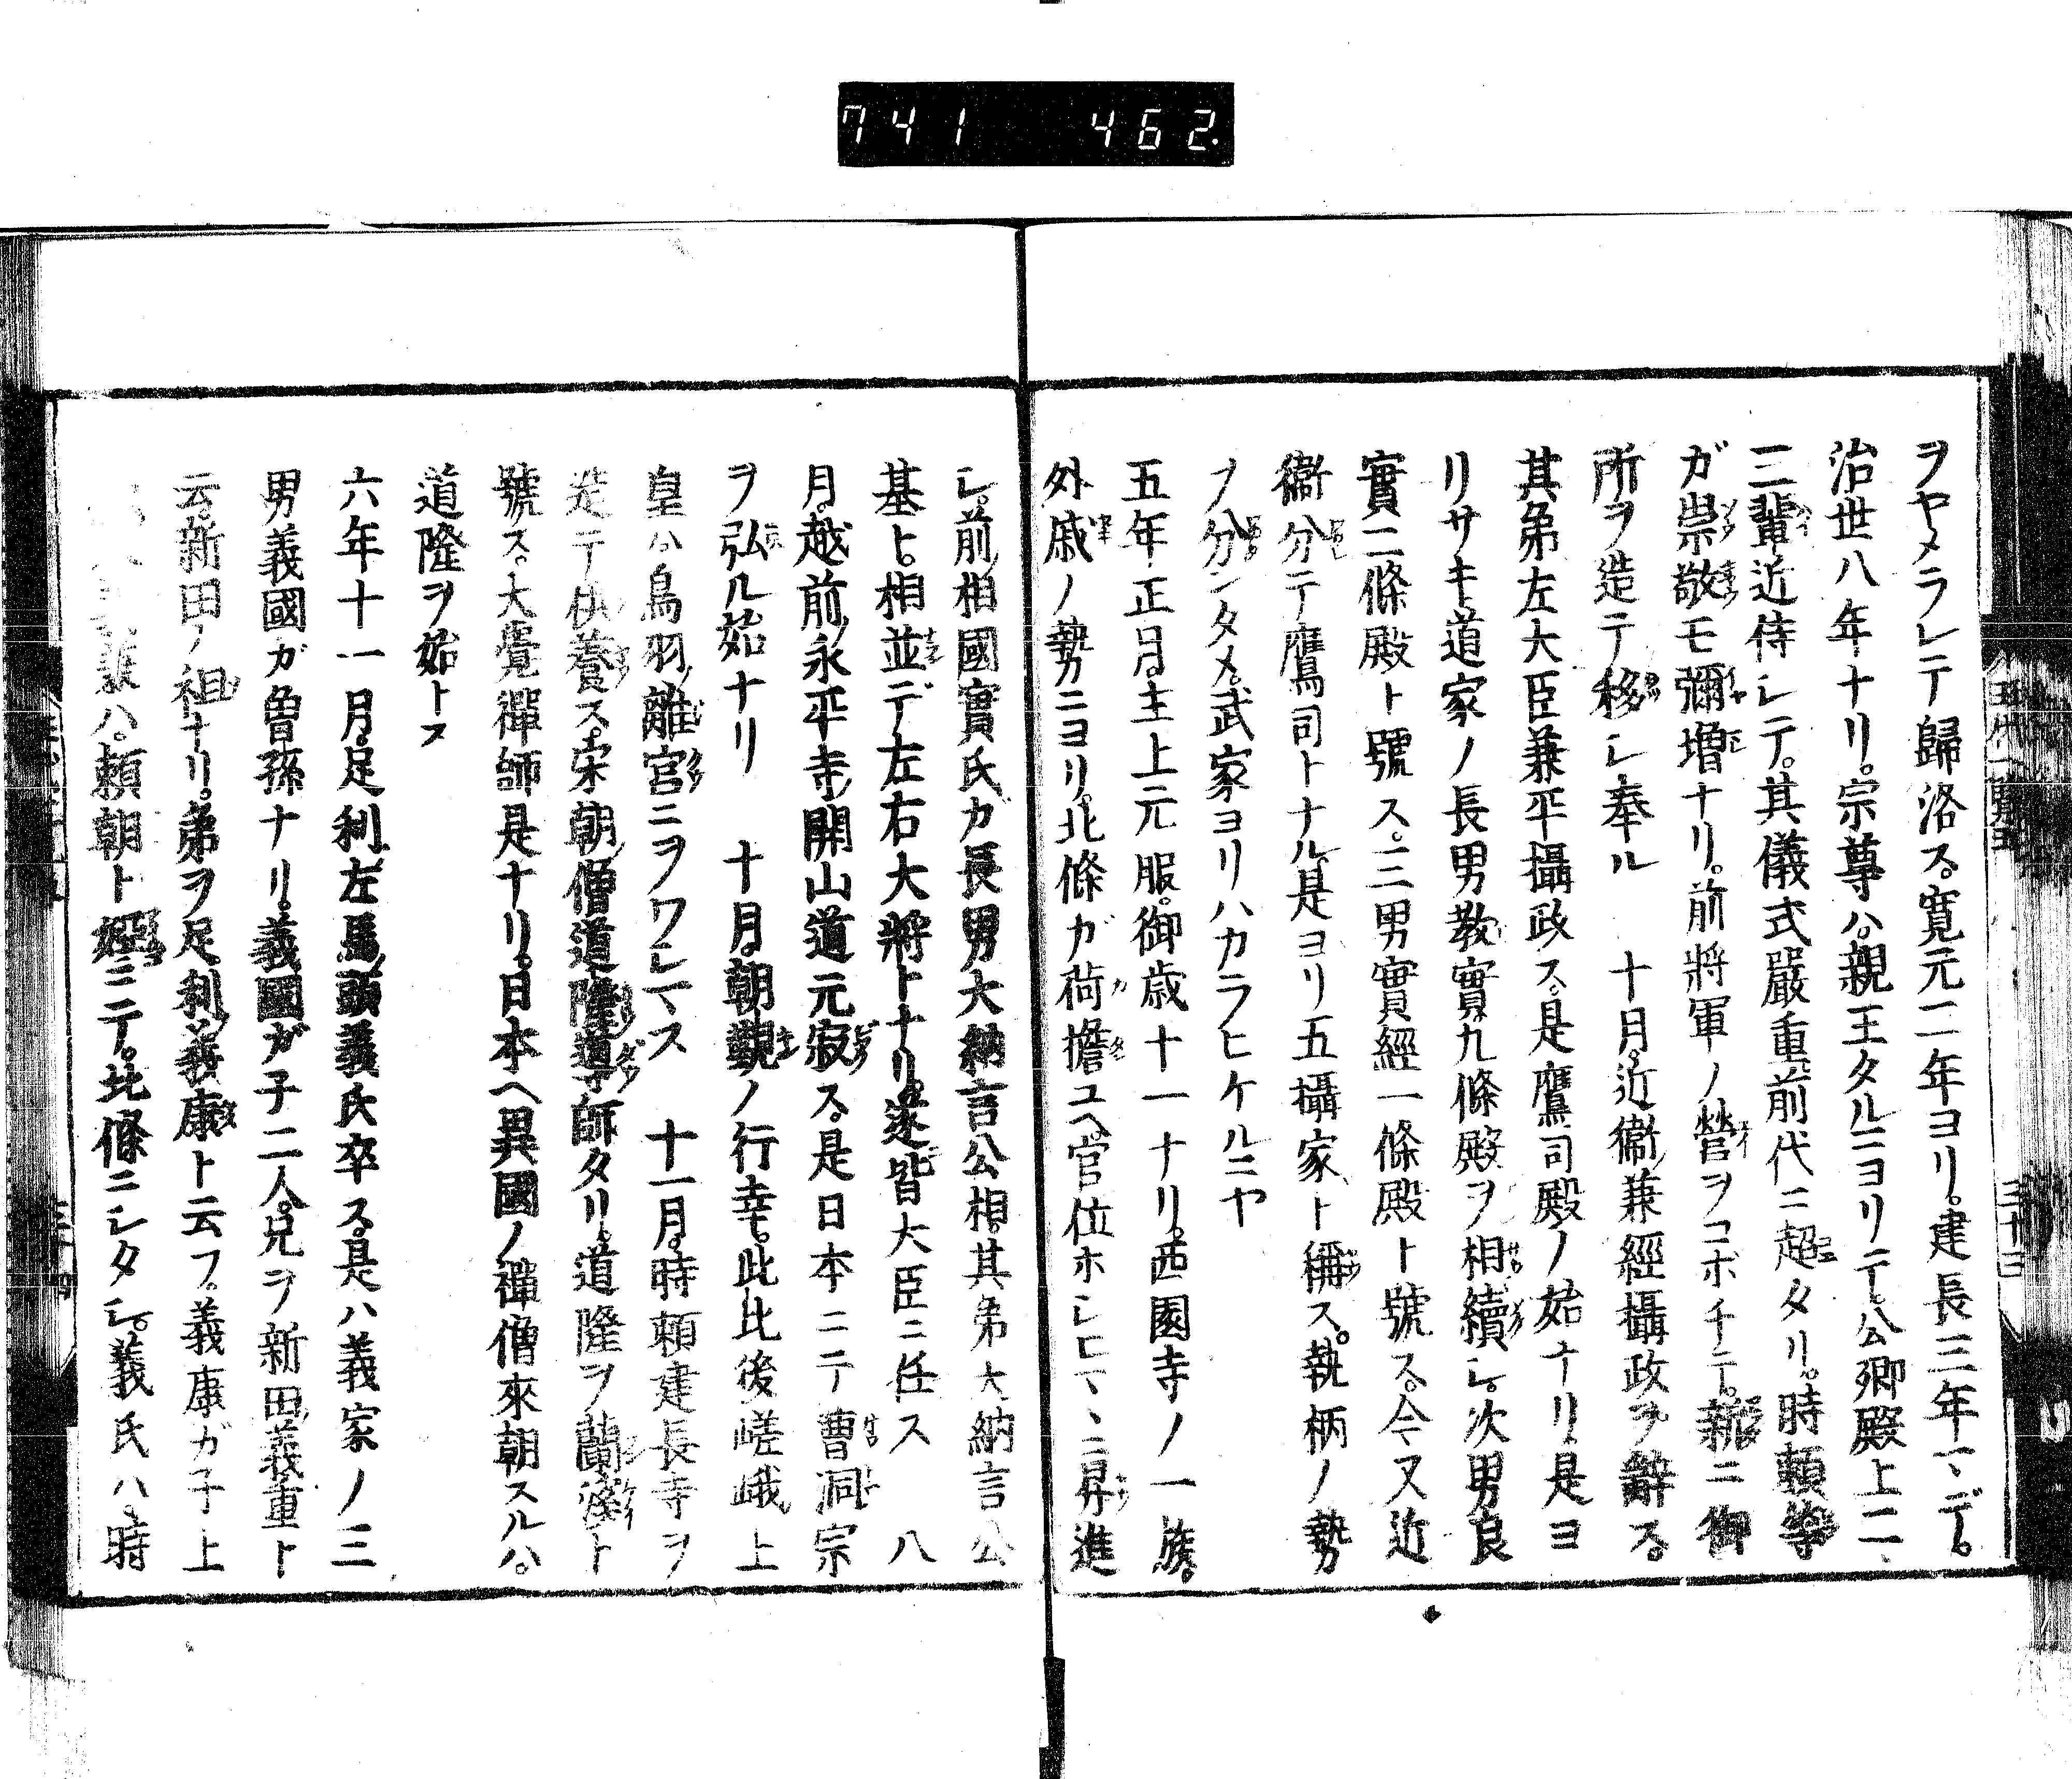 741 462.
ヲヤメラレテ歸洛ス。寛元二年ヨリ。建長三年マデ。
治世八年ナリ。宗尊ハ。親王タルニヨリテ。公卿殿上ニ、
三輩近侍シテ。其儀式嚴重前代ニ超タリ。時頼等
ガ崇敬モ彌増ナリ。前將軍ノ營ヲコボチテ。新ニ御
所ヲ造テ移シ奉ル 十月。近衞兼經攝政ヲ辭ス。
其弟左大臣兼平攝政ス。是鷹司殿ノ始ナリ。是ヨ
リサキ道家ノ長男教實九條殿ヲ相續シ。次男良
實二條殿ト號ス。三男實經一條殿ト號ス。今又近
衞分テ鷹司トナル。是ヨリ五攝家ト稱ス。執柄ノ勢
ヲ分ンタメ。武家ヨリハカラヒケルニヤ
五年正月。主上元服。御歳十一ナリ。西園寺ノ一族。
外戚ノ勢ニヨリ。北條ガ荷擔ユヘ。官位ホシヒマヽニ昇進
シ。前相國實氏カ長男大納言公相。其弟大納言公
基ト。相並デ左右大將トナリ。遂皆大臣ニ任ス 八
月。越前永平寺開山道元寂ス。是日本ニテ曹洞宗
ヲ弘ル始ナリ 十月。朝覲ノ行幸。此比後嵯峨上
皇ハ鳥羽離宮ニヲワシマス 十一月。時頼建長寺ヲ
造テ供養ス。宋朝僧道隆導師タリ。道隆ヲ蘭溪ト
號ス。大覺禪師是ナリ。日本ヘ異國ノ禪僧來朝スルハ。
道隆ヲ始トス
六年十一月。足利左馬頭義氏卒ス。是ハ義家ノ三
男義國ガ曾孫ナリ。義國ガ子二人。兄ヲ新田義重ト
云。新田ノ祖ナリ。弟ヲ足利義康ト云フ。義康ガ子上
兼ハ。頼朝ト婭ニテ。北條ニシタシ。義氏ハ。時